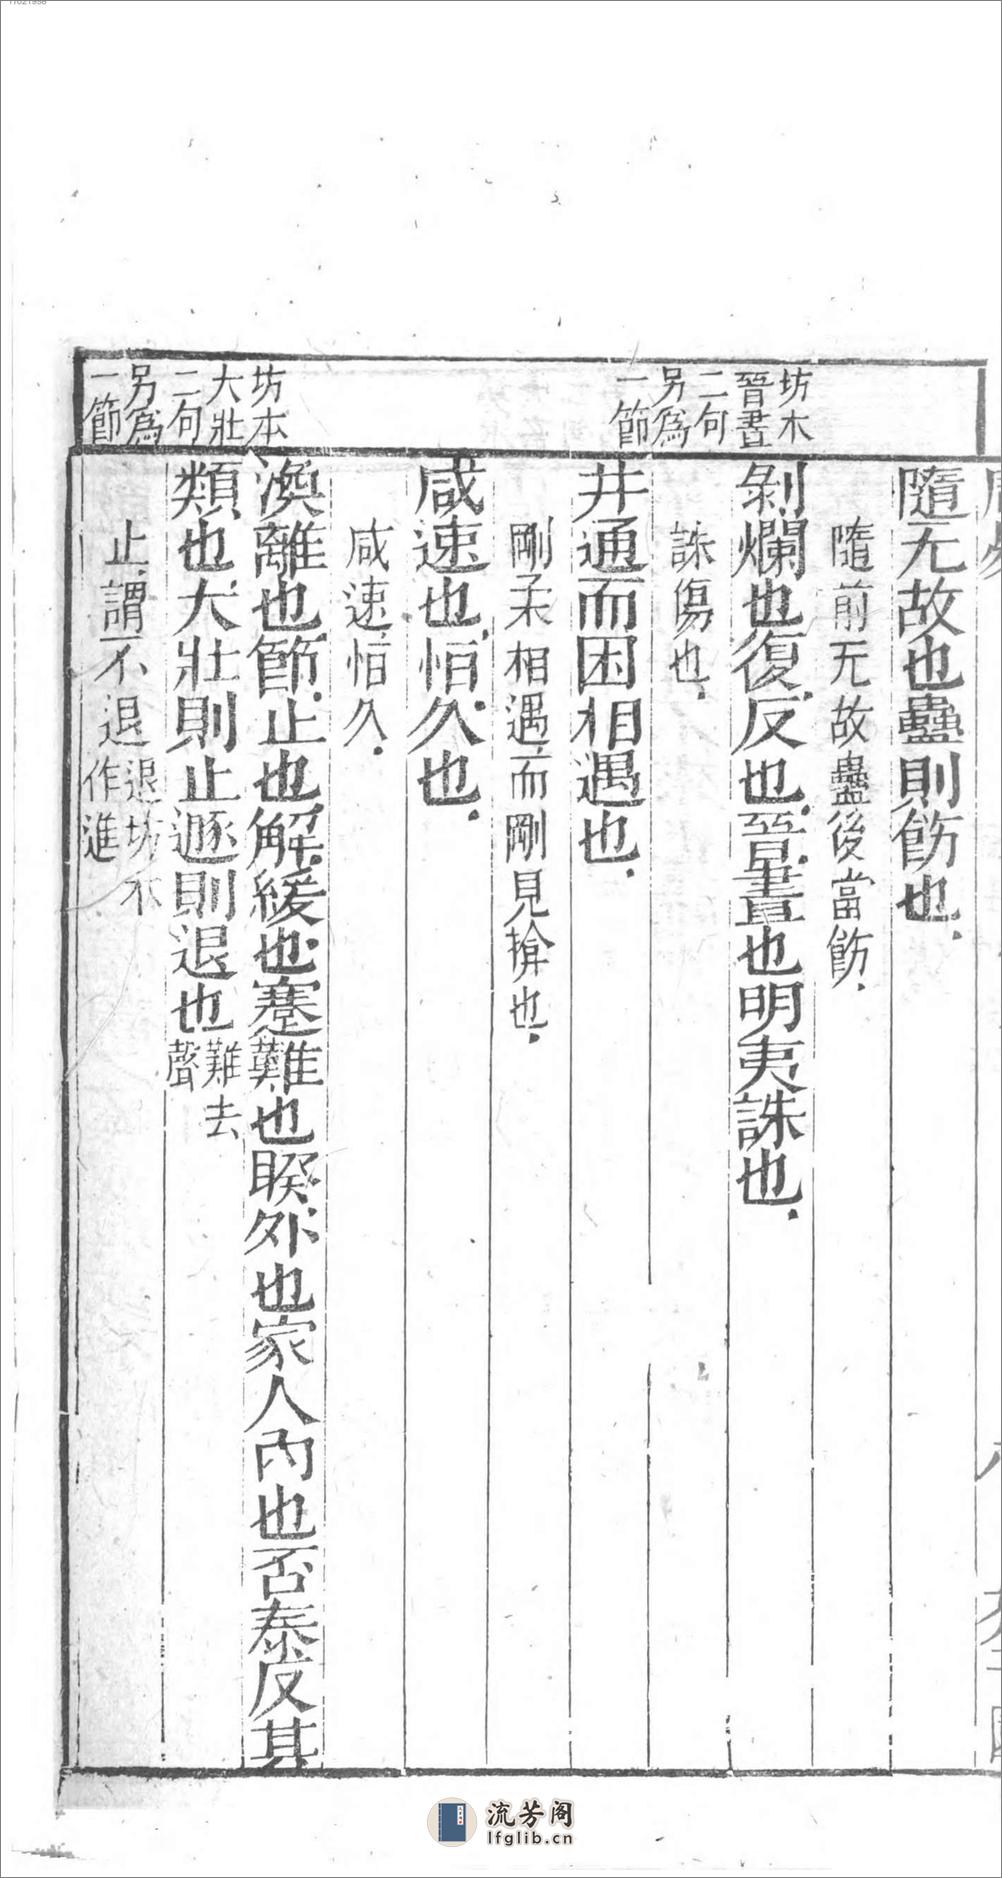 坊本
晉晝
二句
另爲
一節
坊本
大壯
二句
另爲
一節
隨无故也蠱則飭也
隨前无故蠱後當飭
剝爛也復反也晉晝也明夷誅也
誅傷也
井通而困相遇也
剛柔相遇而剛見揜也
咸速也恒久也
咸速恒久
渙離也節止也解緩也蹇難也睽外也家人內也否泰反其
類也大壯則止遯則退也難去聲
止謂不退退坊本作進
流芳阁
lfglib.cn